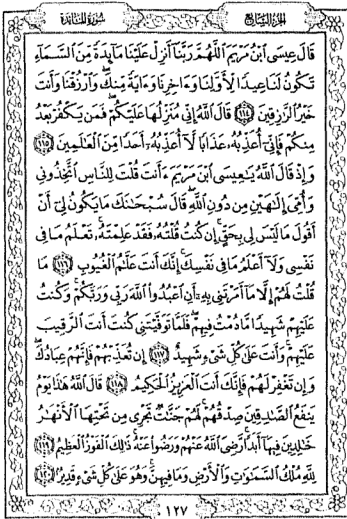 الجزء السابع
سورة المائدة
قَالَ عِيسَى ٱبْنُ مَرْيَمَ ٱللَّهُمَّ رَبَّنَآ أَنزِلْ عَلَيْنَا مَآئِدَةً مِّنَ ٱلسَّمَآءِ
تَكُونُ لَنَا عِيدًا لِّأَوَّلِنَا وَءَاخِرِنَا وَءَايَةً مِّنكَ وَٱرْزُقْنَا وَأَنتَ
خَيْرُ ٱلرَّٰزِقِينَ ١١٤ قَالَ ٱللَّهُ إِنِّى مُنَزِّلُهَا عَلَيْكُمْ فَمَن يَكْفُرْ بَعْدُ
مِنكُمْ فَإِنِّىٓ أُعَذِّبُهُۥ عَذَابًا لَّآ أُعَذِّبُهُۥٓ أَحَدًا مِّنَ ٱلْعَٰلَمِينَ ١١٥
وَإِذْ قَالَ ٱللَّهُ يَٰعِيسَى ٱبْنَ مَرْيَمَ ءَأَنتَ قُلْتَ لِلنَّاسِ ٱتَّخِذُونِى
وَأُمِّىَ إِلَٰهَيْنِ مِن دُونِ ٱللَّهِ قَالَ سُبْحَٰنَكَ مَا يَكُونُ لِىٓ أَنْ
أَقُولَ مَا لَيْسَ لِى بِحَقٍّ إِن كُنتُ قُلْتُهُۥ فَقَدْ عَلِمْتَهُۥ تَعْلَمُ مَا فِى
نَفْسِى وَلَآ أَعْلَمُ مَا فِى نَفْسِكَ إِنَّكَ أَنتَ عَلَّٰمُ ٱلْغُيُوبِ ١١٦ مَا
قُلْتُ لَهُمْ إِلَّا مَآ أَمَرْتَنِى بِهِۦٓ أَنِ ٱعْبُدُوا۟ ٱللَّهَ رَبِّى وَرَبَّكُمْ وَكُنتُ
عَلَيْهِمْ شَهِيدًا مَّا دُمْتُ فِيهِمْ فَلَمَّا تَوَفَّيْتَنِى كُنتَ أَنتَ ٱلرَّقِيبَ
عَلَيْهِمْ وَأَنتَ عَلَىٰ كُلِّ شَىْءٍ شَهِيدٌ ١١٧ إِن تُعَذِّبْهُمْ فَإِنَّهُمْ عِبَادُكَ
وَإِن تَغْفِرْ لَهُمْ فَإِنَّكَ أَنتَ ٱلْعَزِيزُ ٱلْحَكِيمُ ١١٨ قَالَ ٱللَّهُ هَٰذَا يَوْمُ
يَنفَعُ ٱلصَّٰدِقِينَ صِدْقُهُمْ لَهُمْ جَنَّٰتٌ تَجْرِى مِن تَحْتِهَا ٱلْأَنْهَٰرُ
خَٰلِدِينَ فِيهَآ أَبَدًا رَّضِىَ ٱللَّهُ عَنْهُمْ وَرَضُوا۟ عَنْهُ ذَٰلِكَ ٱلْفَوْزُ ٱلْعَظِيمُ ١١٩
لِلَّهِ مُلْكُ ٱلسَّمَٰوَٰتِ وَٱلْأَرْضِ وَمَا فِيهِنَّ وَهُوَ عَلَىٰ كُلِّ شَىْءٍ قَدِيرٌۢ ١٢٠
١٢٧